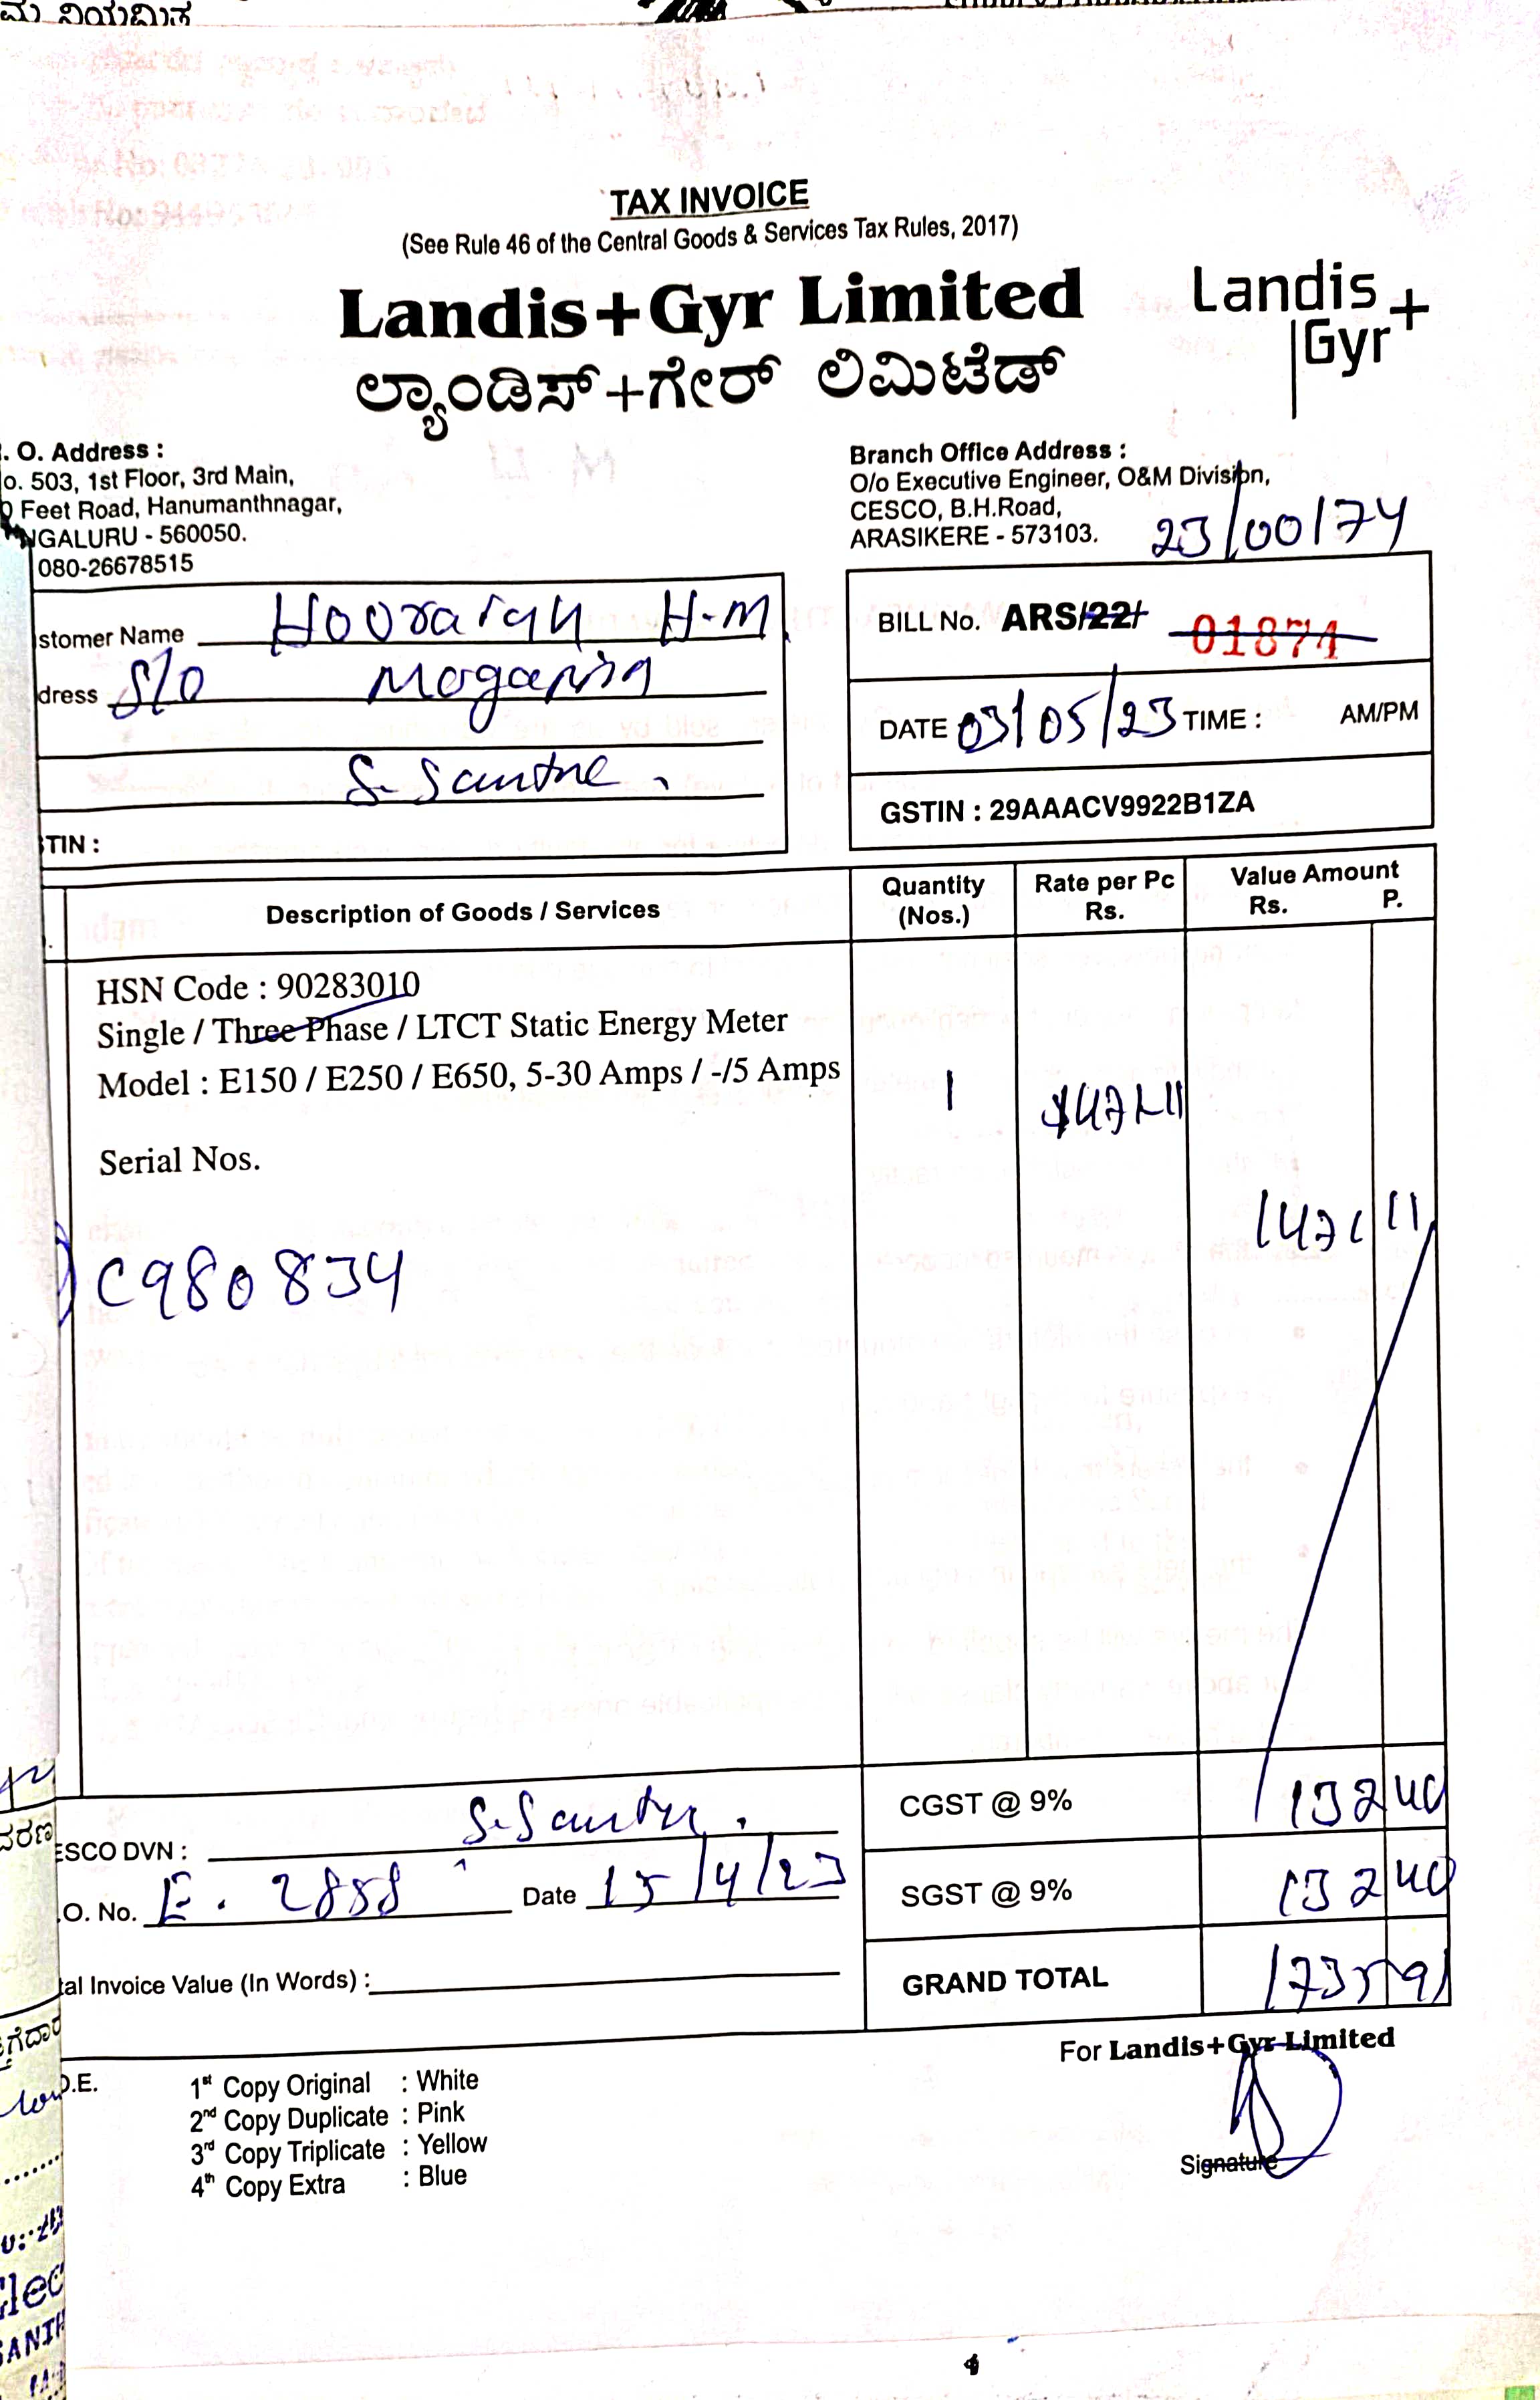 ಮ ನಿಯಮಿತ
TAX INVOICE
(See Rule 46 of the Central Goods & Services Tax Rules, 2017)
Landis+Gyr Limited
ಲ್ಯಾಂಡಿಸ್+ಗೇರ್ ಲಿಮಿಟೆಡ್
Landis
Gyr+
. O. Address :
o. 503, 1st Floor, 3rd Main,
0 Feet Road, Hanumanthnagar,
NGALURU - 560050.
080-26678515
Branch Office Address :
O/o Executive Engineer, O&M Division,
CESCO, B.H.Road,
ARASIKERE - 573103.
23/00174
stomer Name Hooraiah H.M.
dress S/o
S. Santhe.
TIN :
BILL No. ARS/22/ 01874
DATE 03/05/23 TIME : AM/PM
GSTIN : 29AAACV9922B1ZA
Description of Goods / Services Quantity (Nos.) Rate per Pc Rs. Value Amount Rs. P.
HSN Code : 90283010
Single / Three Phase / LTCT Static Energy Meter
Model : E150 / E250 / E650, 5-30 Amps / -/5 Amps 1 1471.11
Serial Nos.
1471 11
C980834
CGST @ 9% 132 40
ESCO DVN : S. Santhe.
.O. No. E. 2858 Date 15/4/23
SGST @ 9% 132 40
tal Invoice Value (In Words) :
GRAND TOTAL 1735 91
For Landis+Gyr Limited
O.E.
1st Copy Original : White
2nd Copy Duplicate : Pink
3rd Copy Triplicate : Yellow
4th Copy Extra : Blue
Signature
Elec
SANTH